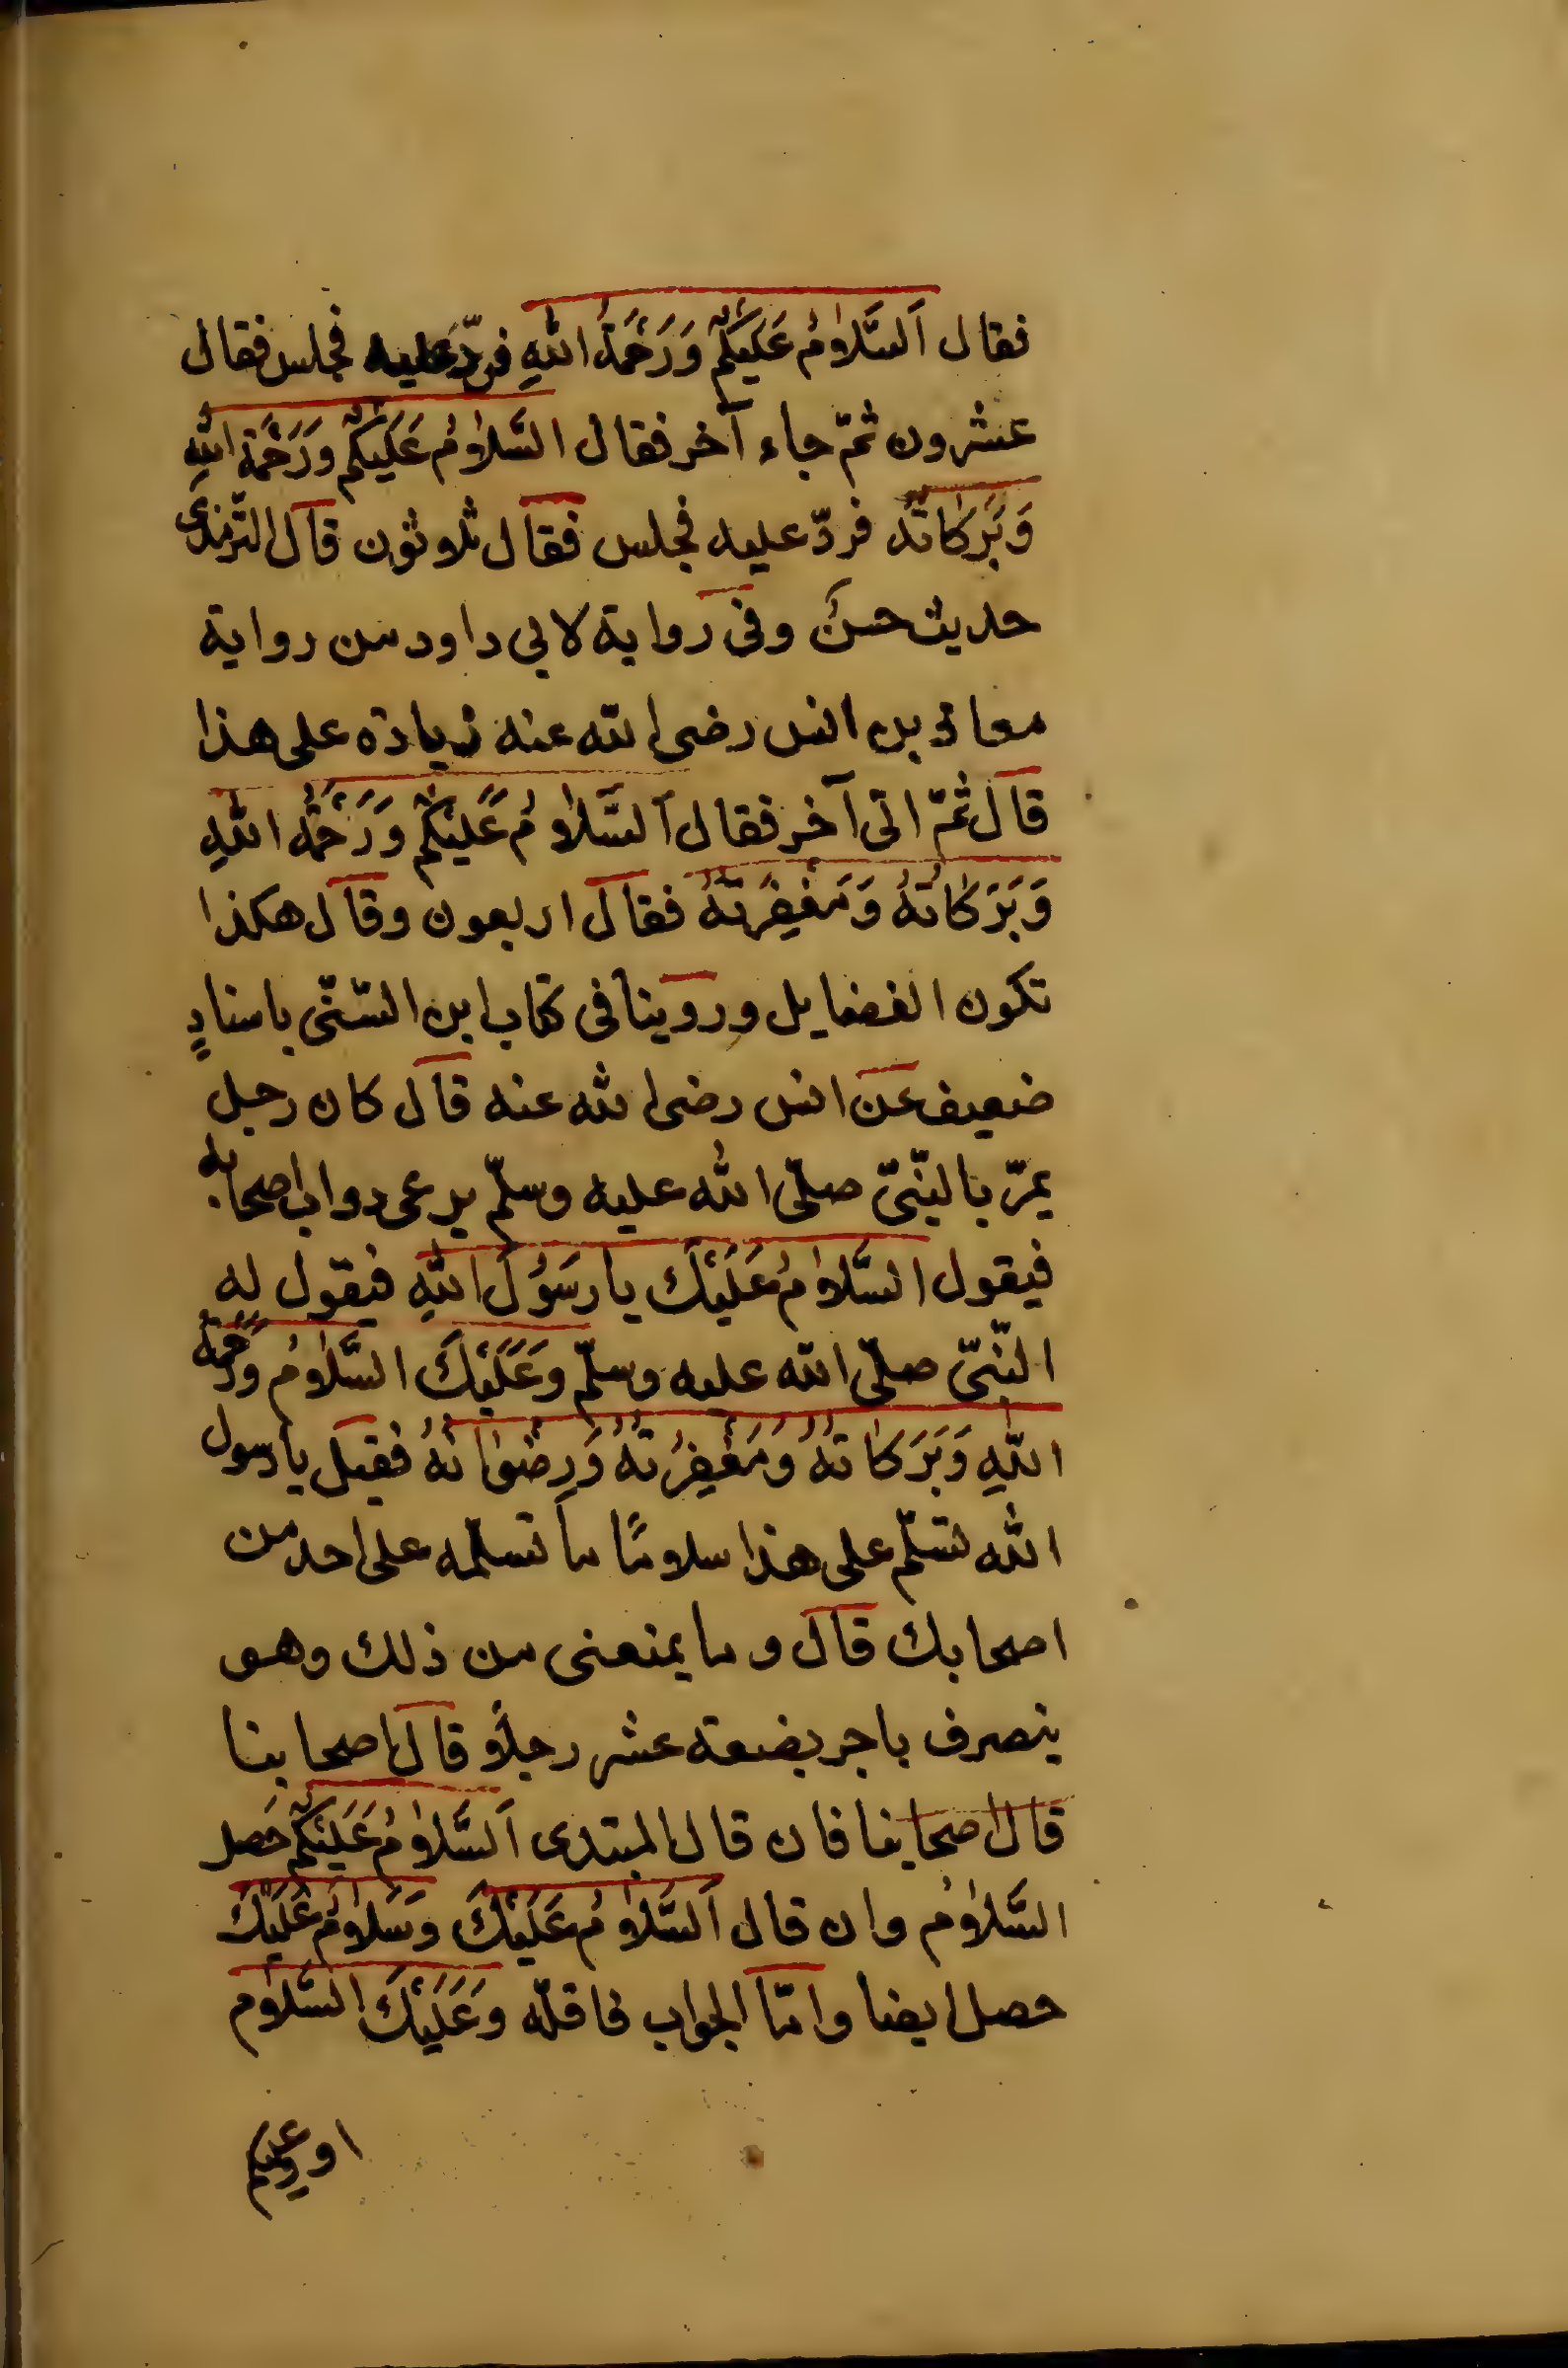 فقال اَلسَّلَامُ عَلَيْكُمْ وَرَحْمَةُ اللّٰهِ فردّ عليه فجلس فقال
عشرون ثمّ جاء آخر فقال السَّلَامُ عَلَيْكُمْ وَرَحْمَةُ اللّٰهِ
وَبَرَكَاتُهُ فردّ عليه فجلس فقال ثلاثون قال الترمذى
حديث حسنٌ وفى رواية لابي داود من رواية
معاذ بن انس رضى اللّه عنه زيادة على هذا
قال ثمّ اتى آخر فقال اَلسَّلَامُ عَلَيْكُمْ وَرَحْمَةُ اللّٰهِ
وَبَرَكَاتُهُ وَمَغْفِرَتُهُ فقال اربعون وقال هكذا
تكون الفضايل وروينا فى كتاب ابن السّنّى باسنادٍ
ضعيف عن انس رضى اللّه عنه قال كان رجل
يمرّ بالنّبىّ صلّى اللّه عليه وسلّم يرعى دواب اصحابه
فيقول السَّلَامُ عَلَيْكَ يا رَسُوْلَ اللّٰهِ فيقول له
النّبىّ صلّى اللّه عليه وسلّم وَعَلَيْكَ السَّلَامُ وَرَحْمَةُ
اللّٰهِ وَبَرَكَاتُهُ وَمَغْفِرَتُهُ وَرِضْوَانُهُ فقيل يا رسول
اللّه تسلّم على هذا سلامًا ما تسلّمه على احد من
اصحابك قال وما يمنعنى من ذلك وهو
ينصرف باجر بضعة عشر رجلًا قال اصحابنا
قال اصحابنا فان قال المبتدى اَلسَّلَامُ عَلَيْكُمْ حَصل
السَّلَامُ وان قال اَلسَّلَامُ عَلَيْكَ وَسَلَامٌ عَلَيْكَ
حصل ايضا وامّا الجواب فاقلّه وَعَلَيْكَ السَّلَام
او وعليكم